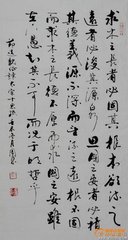 求木之長者必固其根本欲流之
遠者必浚其泉源思國之安者必積
其德義源不深而望流之遠根不固
而求木之長德不厚而思國之安雖
在下愚知其不可而況於明哲乎